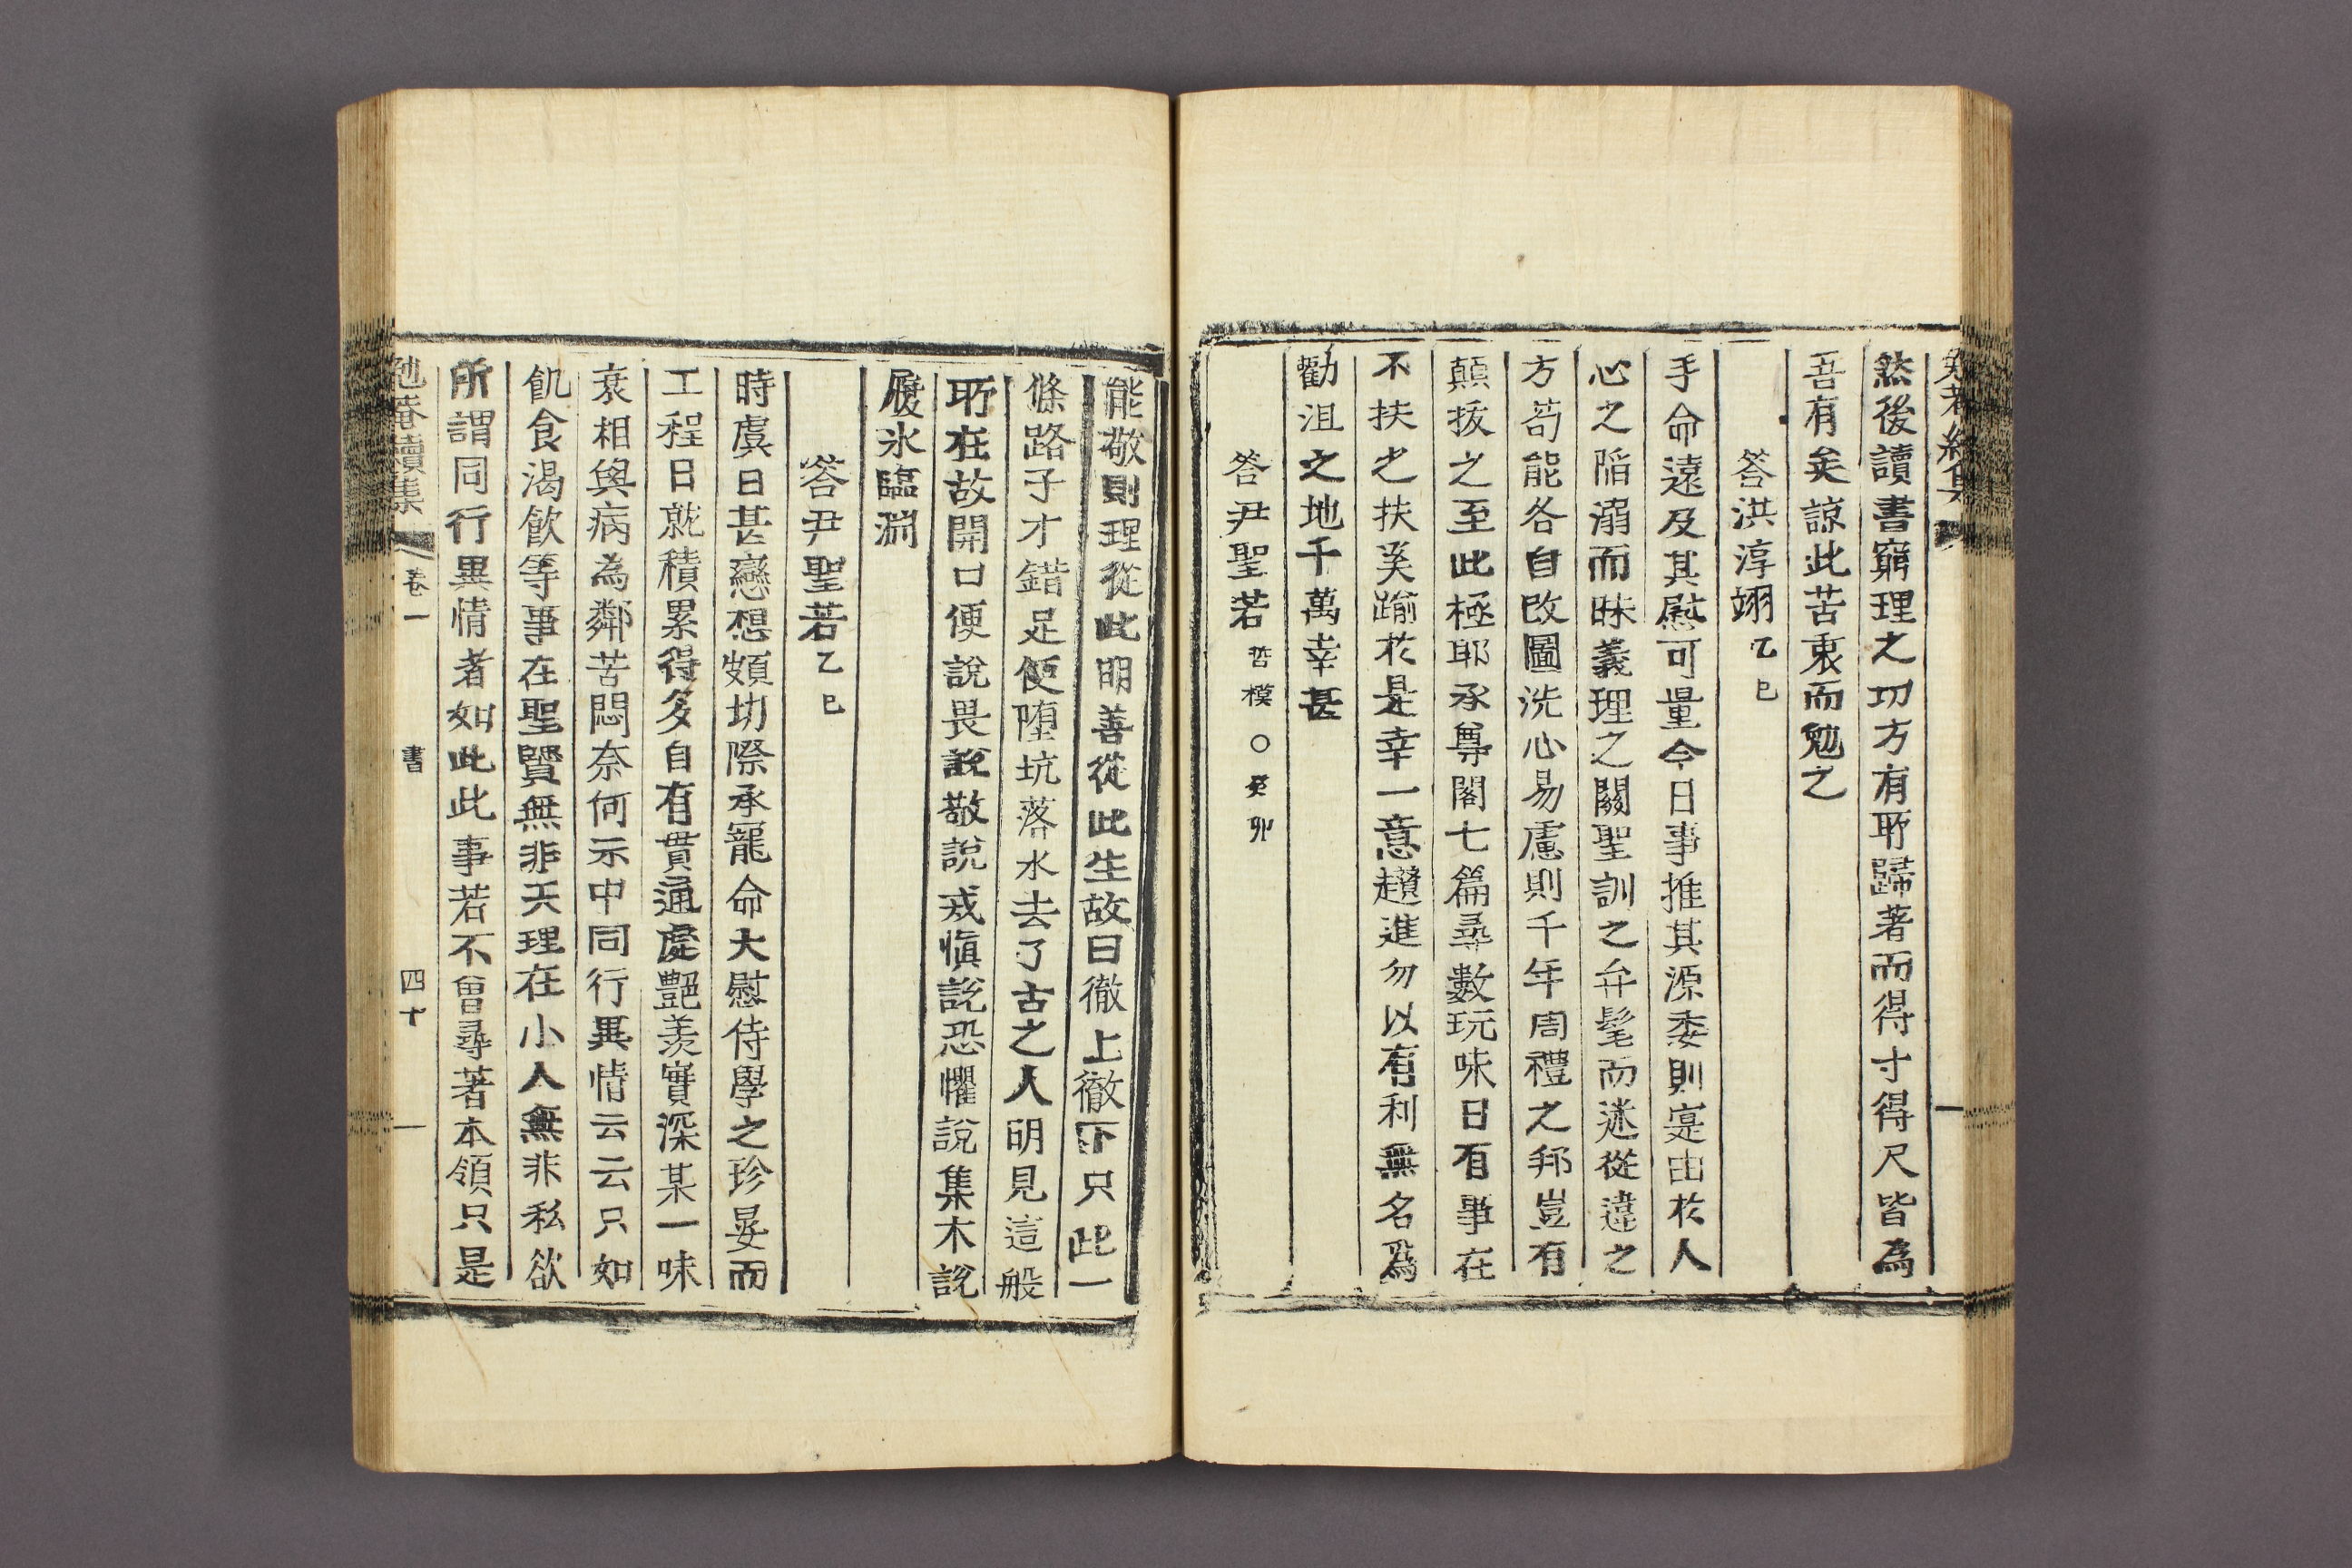 然後讀書窮理之功方有所歸著而得寸得尺皆為
吾有矣諒此苦衷而勉之
答洪淳翊 乙巳
手命遠及其慰可量今日事推其源委則寔由於人
心之陷溺而昧義理之關聖訓之弁髦而迷從違之
方苟能各自改圖洗心易慮則千年周禮之邦豈有
顛拔之至此極耶承尊閣七篇尋數玩味日有事在
不扶之扶奚踰於是幸一意趲進勿以有利無名為
勸沮之地千萬幸甚
答尹聖若 哲模○癸卯
能敬則理從此明善從此生故曰徹上徹下只此一
條路子才錯足便墮坑落水去了古之人明見這般
所在故開口便說畏說敬說戒愼說恐懼說集木說
履氷臨淵
答尹聖若 乙巳
時虞日甚戀想頗切際承寵命大慰侍學之珍晏而
工程日就積累得多自有貫通處艶羨實深某一味
衰相與病為鄰苦悶奈何示中同行異情云云只如
飢食渴飮等事在聖賢無非天理在小人無非私欲
所謂同行異情者如此此事若不曾尋著本領只是
勉菴續集 卷一 書 四十